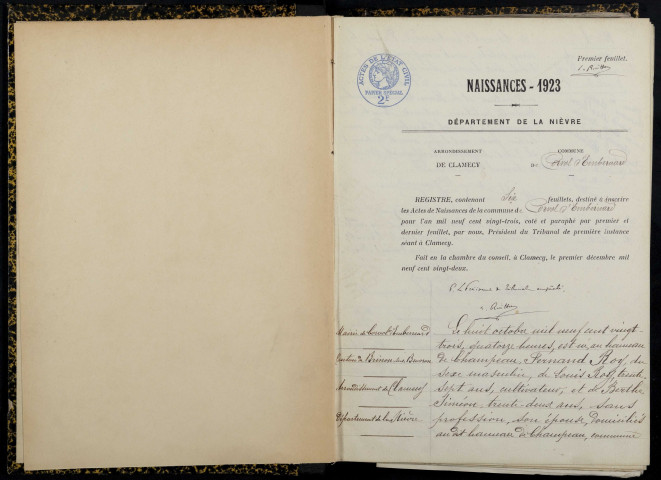 Premier feuillet.
ACTES DE L'ÉTAT CIVIL
PAPIER SPÉCIAL
2F
NAISSANCES - 1923
DÉPARTEMENT DE LA NIÈVRE
ARRONDISSEMENT
DE CLAMECY
COMMUNE
d'Embernard
REGISTRE, contenant Six feuillets, destiné à inscrire
les Actes de Naissances de la commune de Corvol d'Embernard
pour l'an mil neuf cent vingt-trois, coté et paraphé par premier et
dernier feuillet, par nous, Président du Tribunal de première instance
séant à Clamecy.
Fait en la chambre du conseil, à Clamecy, le premier décembre mil
neuf cent vingt-deux.
Mairie de Corvol d'Embernard
Canton de Brinon
Arrondissement de Clamecy
Département de la Nièvre
Le huit octobre mil neuf cent vingt-
trois, quatorze heures, est né, au hameau
de Champeau, Fernand Roy, du
sexe masculin, de Louis Roy, trente
sept ans, cultivateur, et de Berthe
Siméon, trente deux ans, sans
profession, son épouse, domiciliés
au dit hameau de Champeau, commune